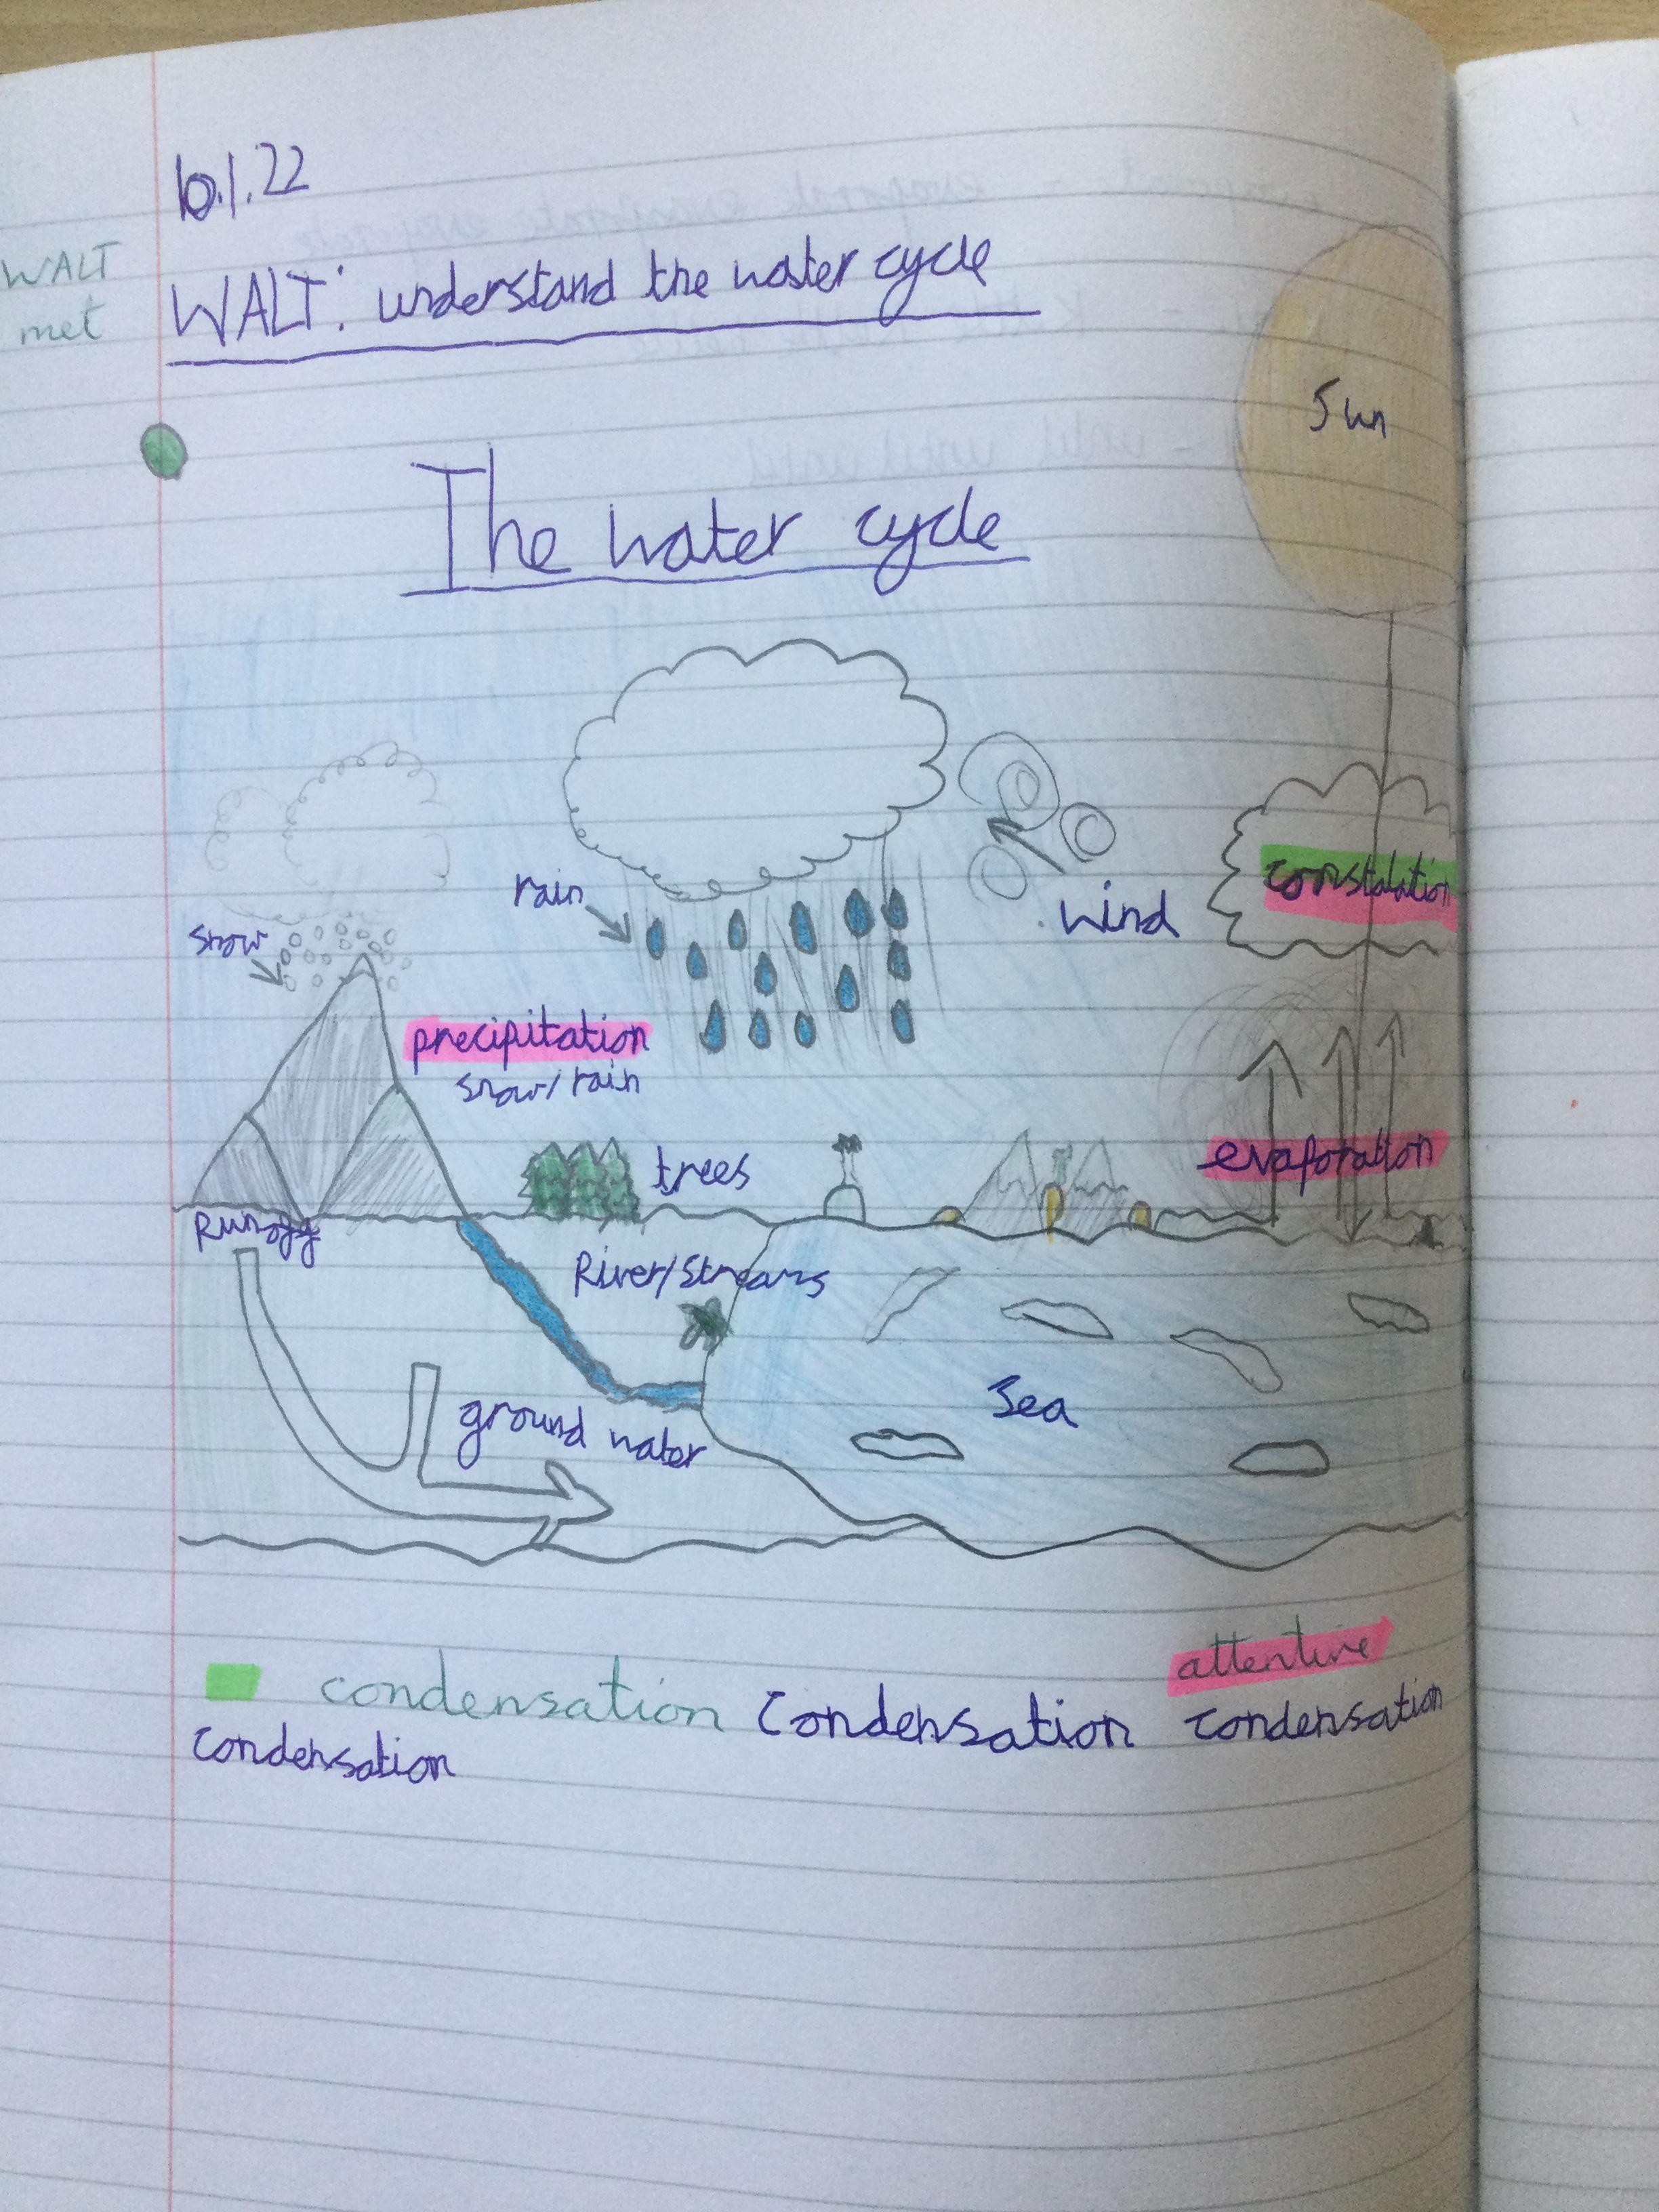 10.1.22
WALT
met
WALT: understand the water cycle
Sun
The water cycle
rain
wind
constalation
snow
precipitation
snow/rain
evaporation
trees
Runoff
River/Streams
Sea
ground water
attentive
condensation condensation condensation
condensation